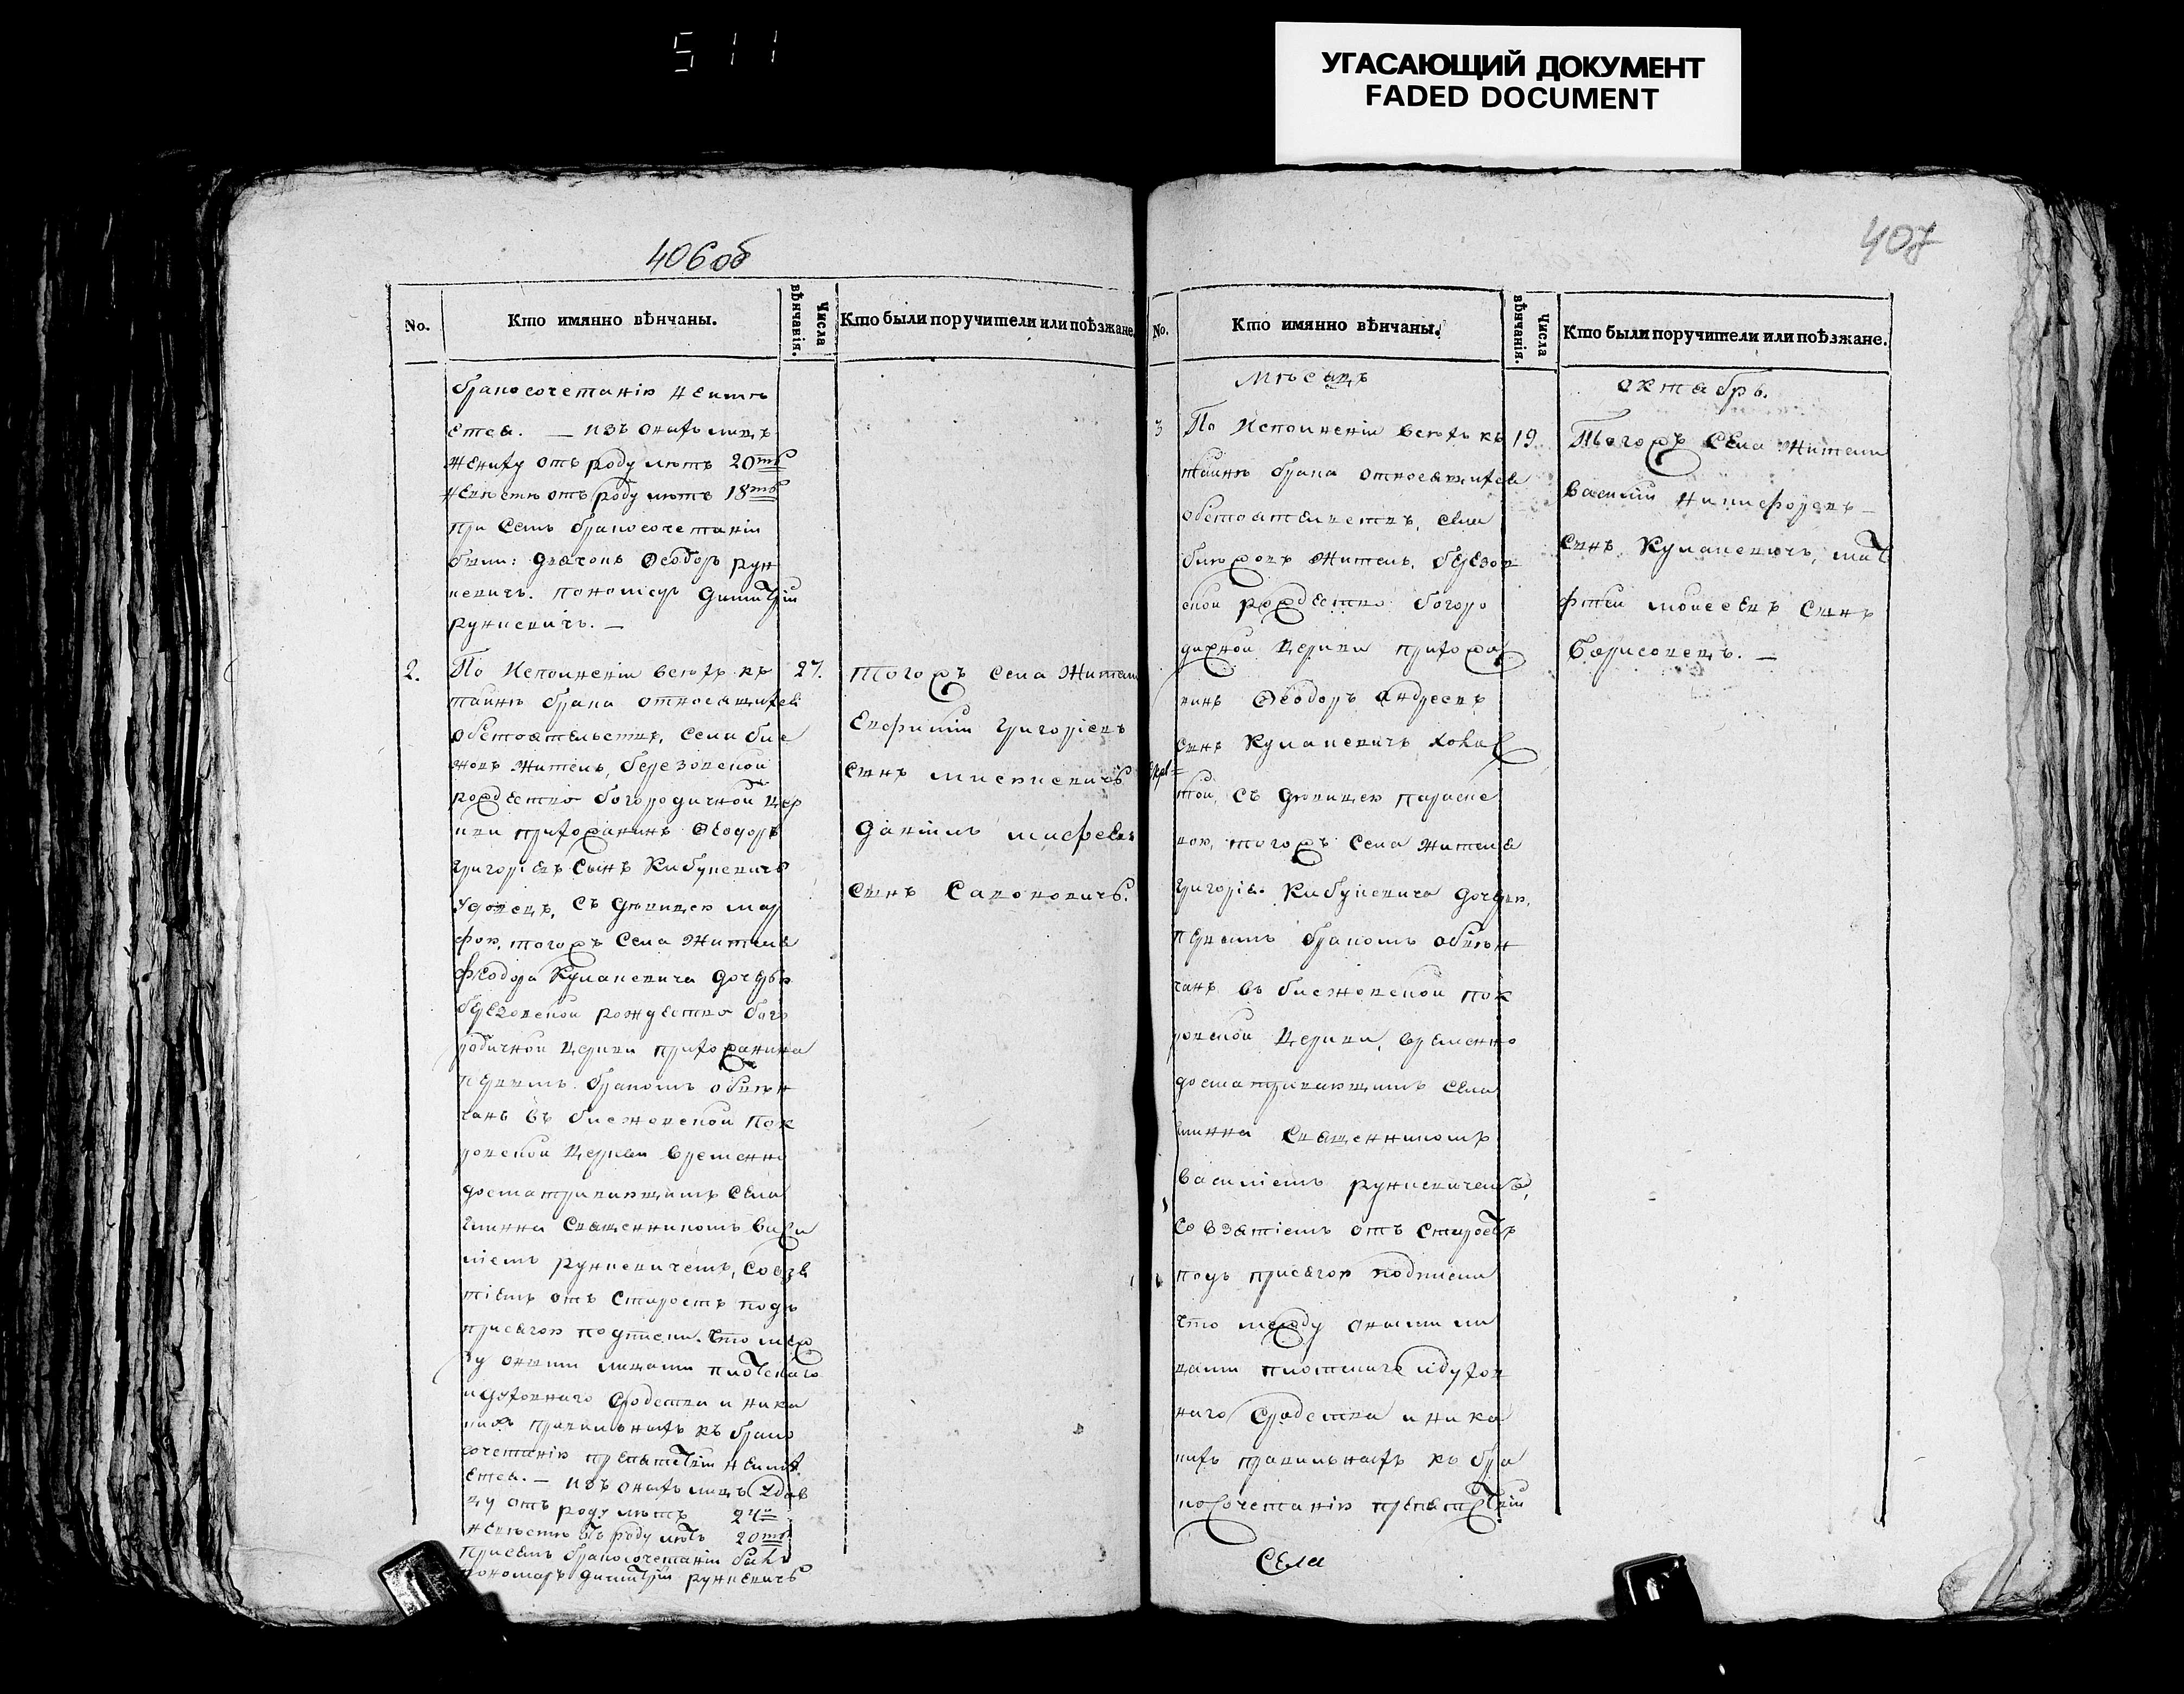 511
УГАСАЮЩИЙ ДОКУМЕНТ
FADED DOCUMENT
406об
407
No.
Кто имянно вѣнчаны.
Числа вѣнчанія.
Кто были поручители или поѣзжане.
бракосочетанію неимѣ
ется. — изъ онихъ лицъ
жениху отъ роду лѣтъ 20ть
невѣсте отъ роду лѣтъ 18ть
при семъ бракосочетаніи
были: дячокъ Ѳеодоръ рун
кевичъ. пономаръ димитрій
рункевичъ. —
2.
По Исполненіи всехъ къ
таинѣ брака относящихся
обстоятельствъ, села бие
жовъ житель, березовской
рождество богородичной цер
кви прихожанинъ Ѳеодоръ
григоріевъ сынъ Кибукевичъ
удовецъ, съ дѣвицею мар
фою, тогожъ села жителя
феодора Кулакевича дочерью
березовской рождество бого
родичной церкви прихожанина
первымъ бракомъ обвѣн
чанъ въ биежовской пок
ровской церкви временно
досматривающимъ села
глинна священникомъ васи
ліемъ рункевичемъ, со взя
тіемъ отъ старостъ подъ
присягою подписки. что меж
ду оными лицами плотскаго
и духовнаго сродства и ника
кихъ правильнихъ къ брако
сочетанію препятствій неимѣ
ется. — изъ онихъ лицъ вдов
цу отъ роду лѣтъ
невѣсте отъ роду лѣтъ 20ть
присемъ бракосочетаніи былъ
пономаръ димитрій рункевичъ
27.
тогожъ села жители
Евфимій григоріевъ
сынъ мискевичъ
даніилъ
сынъ Саковичъ.
No.
Кто имянно вѣнчаны.
Числа вѣнчанія.
Кто были поручители или поѣзжане.
мѣсяцъ
октябрь.
3
По Исполненіи всехъ къ
таинѣ брака относящихся
обстоятельствъ, села
биежовъ житель, березов
ской рождество богоро
дичной церкви прихожа
нинъ Ѳеодоръ андреевъ
сынъ Кулакевичъ холос
той, съ дѣвицею параске
вою, тогожъ села жителя
григорія Кибукевича дочерью,
первымъ бракомъ обвѣн
чанъ въ биежовской пок
ровской церкви, временно
досматривающимъ села
глинна священникомъ
василіемъ рункевичемъ,
со взятіемъ отъ старостъ
подъ присягою подписки
что между оными ли
цами плотскаго и духов
наго сродства и ника
кихъ правильнихъ къ бра
косочетанію препятствій
Села
19.
Тогожъ села жители
василій никифоровъ
сынъ Кулакевичъ, мат
фтей моисеевъ сынъ
борисовецъ. —